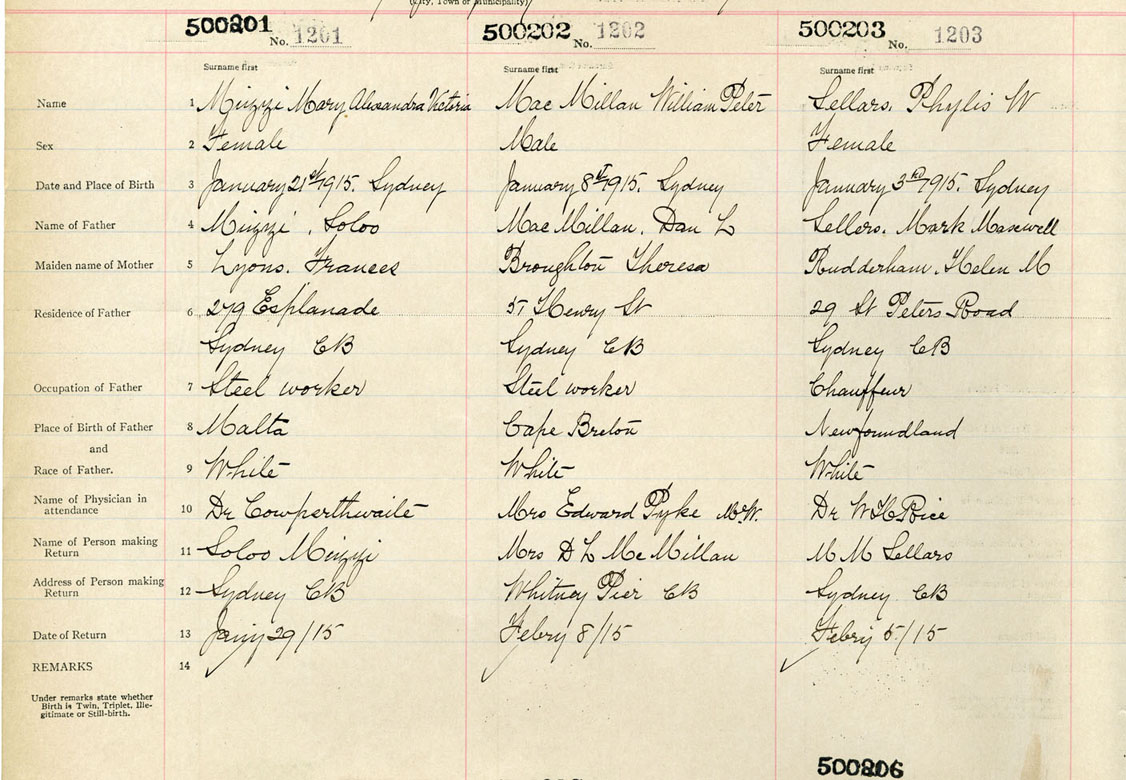 (City, Town or Municipality)
500201 No. 1201 500202 No. 1202 500203 No. 1203
Surname first Surname first Surname first
Name 1 Mizzi Mary Alexandra Victoria Mac Millan William Peter Sellars. Phylis W
Sex 2 Female Male Female
Date and Place of Birth 3 January 21st 1915. Sydney January 8th 1915. Sydney January 3rd 1915. Sydney
Name of Father 4 Mizzi, Soloo Mac Millan, Dan L Sellers. Mark Maxwell
Maiden name of Mother 5 Lyons. Frances Broughton Theresa Rudderham. Helen M
Residence of Father 6 279 Esplanade 57 Henry St 29 St Peters Road
Sydney CB Sydney CB Sydney CB
Occupation of Father 7 Steel worker Steel worker Chauffeur
Place of Birth of Father 8 Malta Cape Breton Newfoundland
and
Race of Father. 9 White White White
Name of Physician in
attendance 10 Dr Cowperthwaite Mrs Edward Pyke M.W. Dr W H Rice
Name of Person making
Return 11 Soloo Mizzi Mrs D L McMillan M M Sellars
Address of Person making
Return 12 Sydney CB Whitney Pier CB Sydney CB
Date of Return 13 Jany 29/15 Febry 8/15 Febry 5/15
REMARKS 14
Under remarks state whether
Birth is Twin, Triplet, Ille-
gitimate or Still-birth.
500206